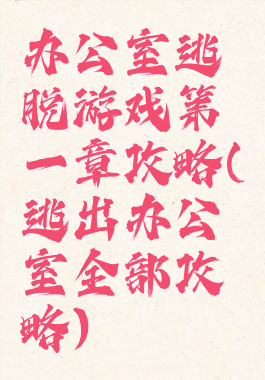 办公室逃
脱游戏第
一章攻略(
逃出办公
室全部攻
略)